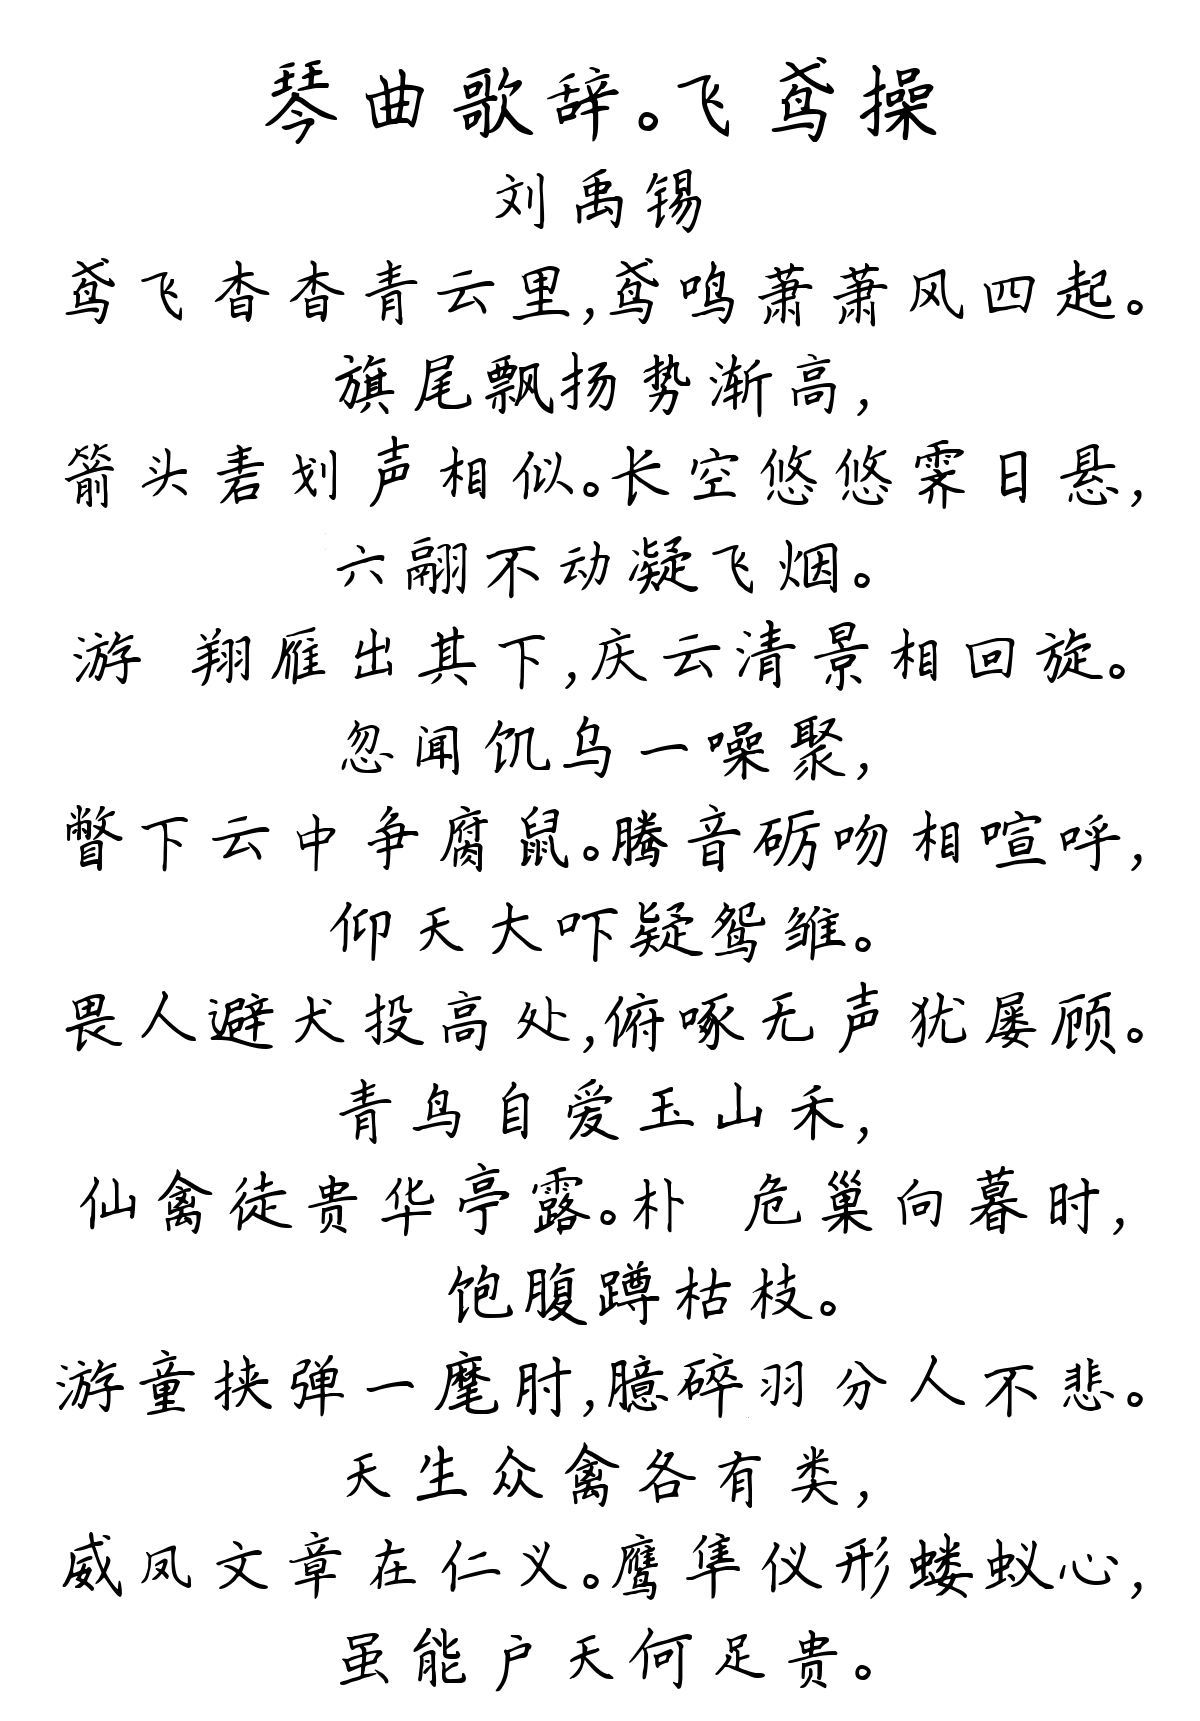 琴曲歌辞。飞鸢操
刘禹锡
鸢飞杳杳青云里,鸢鸣萧萧风四起。
旗尾飘扬势渐高,
箭头砉划声相似。长空悠悠霁日悬,
六翮不动凝飞烟。
游 翔雁出其下,庆云清景相回旋。
忽闻饥乌一噪聚,
瞥下云中争腐鼠。腾音砺吻相喧呼,
仰天大吓疑鸳雏。
畏人避犬投高处,俯啄无声犹屡顾。
青鸟自爱玉山禾,
仙禽徒贵华亭露。朴 危巢向暮时,
饱腹蹲枯枝。
游童挟弹一麾肘,臆碎羽分人不悲。
天生众禽各有类,
威凤文章在仁义。鹰隼仪形蝼蚁心,
虽能户天何足贵。